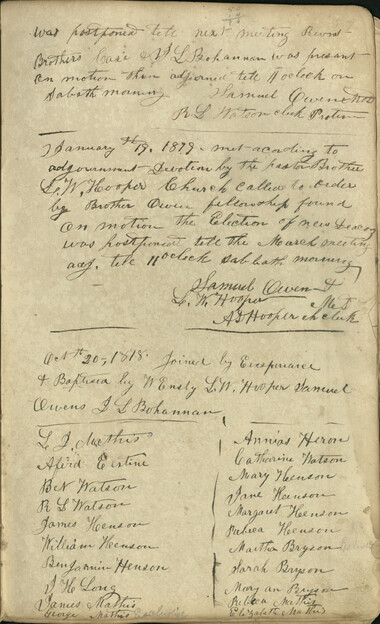 was postponed till next meeting
Brothers Case & J L Bohannan was present
on motion then adjorned till 11 oclock on
Sabath morning Samuel Owen Mod
R L Watson clerk Protem
January 19, 1879 met acording to
adjournment Devotion by the pastor Brother
L. W. Hooper Church called to order
by Brother Owen fellowship found
on motion the Eliction of new Deacon
was postponed till the March meeting
adj. till 11 oclock Sabbath morning
Samuel Owen
L. W. Hooper
A J Hooper ch clerk
Oct th 20, 1878 Joined by Experiance
& Baptised by W Ensly L. W. Hooper Samuel
Owens J L Bohannan
L. J. Mathis
B N Watson
R L Watson
James Henson
William Henson
Benjamin Henson
J H Long
James Mathis
George Mathis
Annias Heron
Catharine Watson
Mary Henson
Jane Henson
Margaet Henson
Rebeca Henson
Martha Bryson
Sarah Bryson
Mary an Bryson
Rebeca Mathis
Elizabeth Mathis